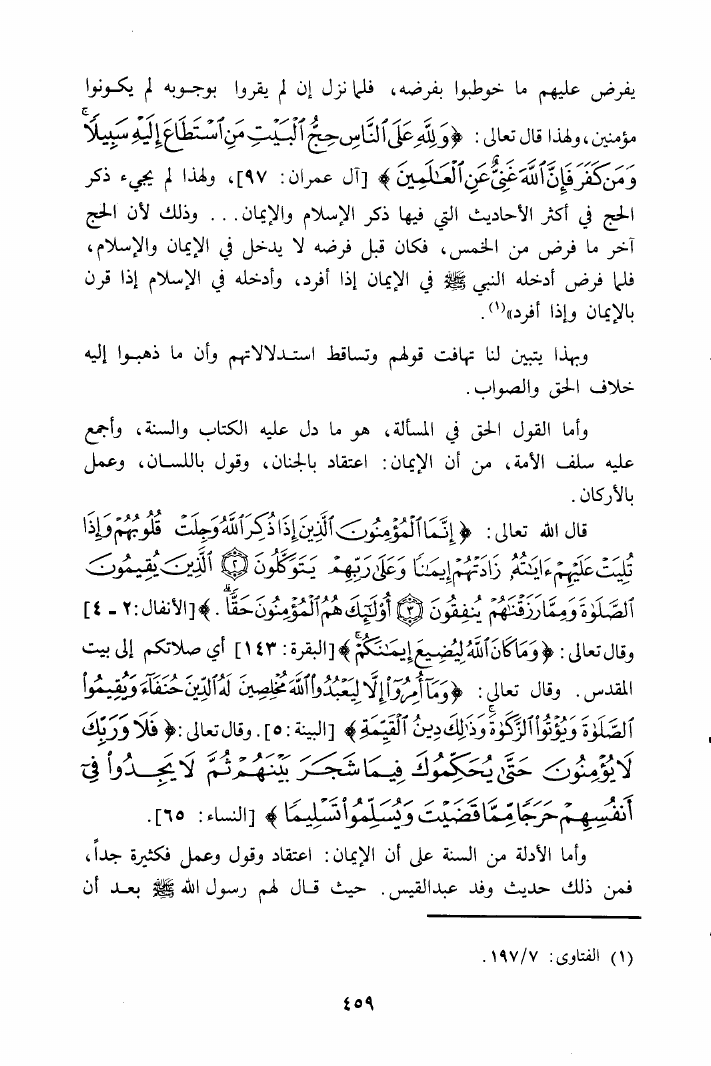 يفرض عليهم ما خوطبوا بفرضه، فلما نزل إن لم يقروا بوجوبه لم يكونوا
مؤمنين، ولهذا قال تعالى: ﴿وَلِلَّهِ عَلَى ٱلنَّاسِ حِجُّ ٱلْبَيْتِ مَنِ ٱسْتَطَاعَ إِلَيْهِ سَبِيلًاۚ
وَمَن كَفَرَ فَإِنَّ ٱللَّهَ غَنِىٌّ عَنِ ٱلْعَـٰلَمِينَ﴾ [آل عمران: ٩٧]، ولهذا لم يجيء ذكر
الحج في أكثر الأحاديث التي فيها ذكر الإسلام والإيمان... وذلك لأن الحج
آخر ما فرض من الخمس، فكان قبل فرضه لا يدخل في الإيمان والإسلام،
فلما فرض أدخله النبي ﷺ في الإيمان إذا أفرد، وأدخله في الإسلام إذا قرن
بالإيمان وإذا أفرد»(١).
وبهذا يتبين لنا تهافت قولهم وتساقط استدلالاتهم وأن ما ذهبوا إليه
خلاف الحق والصواب.
وأما القول الحق في المسألة، هو ما دل عليه الكتاب والسنة، وأجمع
عليه سلف الأمة، من أن الإيمان: اعتقاد بالجنان، وقول باللسان، وعمل
بالأركان.
قال الله تعالى: ﴿إِنَّمَا ٱلْمُؤْمِنُونَ ٱلَّذِينَ إِذَا ذُكِرَ ٱللَّهُ وَجِلَتْ قُلُوبُهُمْ وَإِذَا
تُلِيَتْ عَلَيْهِمْ ءَايَـٰتُهُۥ زَادَتْهُمْ إِيمَـٰنًا وَعَلَىٰ رَبِّهِمْ يَتَوَكَّلُونَ ﴿٢﴾ ٱلَّذِينَ يُقِيمُونَ
ٱلصَّلَوٰةَ وَمِمَّا رَزَقْنَـٰهُمْ يُنفِقُونَ ﴿٣﴾ أُو۟لَـٰٓئِكَ هُمُ ٱلْمُؤْمِنُونَ حَقًّاۚ.﴾ [الأنفال: ٢ - ٤]
وقال تعالى: ﴿وَمَا كَانَ ٱللَّهُ لِيُضِيعَ إِيمَـٰنَكُمْۚ﴾ [البقرة: ١٤٣] أي صلاتكم إلى بيت
المقدس. وقال تعالى: ﴿وَمَآ أُمِرُوٓا۟ إِلَّا لِيَعْبُدُوا۟ ٱللَّهَ مُخْلِصِينَ لَهُ ٱلدِّينَ حُنَفَآءَ وَيُقِيمُوا۟
ٱلصَّلَوٰةَ وَيُؤْتُوا۟ ٱلزَّكَوٰةَۚ وَذَٰلِكَ دِينُ ٱلْقَيِّمَةِ﴾ [البينة: ٥]. وقال تعالى: ﴿فَلَا وَرَبِّكَ
لَا يُؤْمِنُونَ حَتَّىٰ يُحَكِّمُوكَ فِيمَا شَجَرَ بَيْنَهُمْ ثُمَّ لَا يَجِدُوا۟ فِىٓ
أَنفُسِهِمْ حَرَجًا مِّمَّا قَضَيْتَ وَيُسَلِّمُوا۟ تَسْلِيمًا﴾ [النساء: ٦٥].
وأما الأدلة من السنة على أن الإيمان: اعتقاد وقول وعمل فكثيرة جداً،
فمن ذلك حديث وفد عبدالقيس. حيث قال لهم رسول الله ﷺ بعد أن
(١) الفتاوى: ١٩٧/٧.
٤٥٩